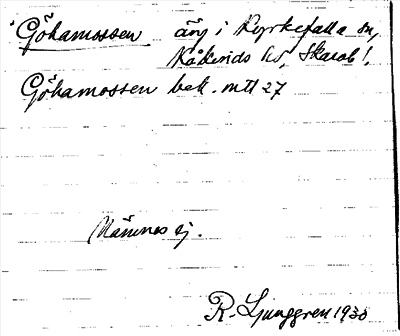 Göhamossen äng i Kyrkefalla sn,
Kåkinds hd, Skarab l.
Göhamossen bek. mtl 27
Nämnes ej.
R. Ljunggren 1930